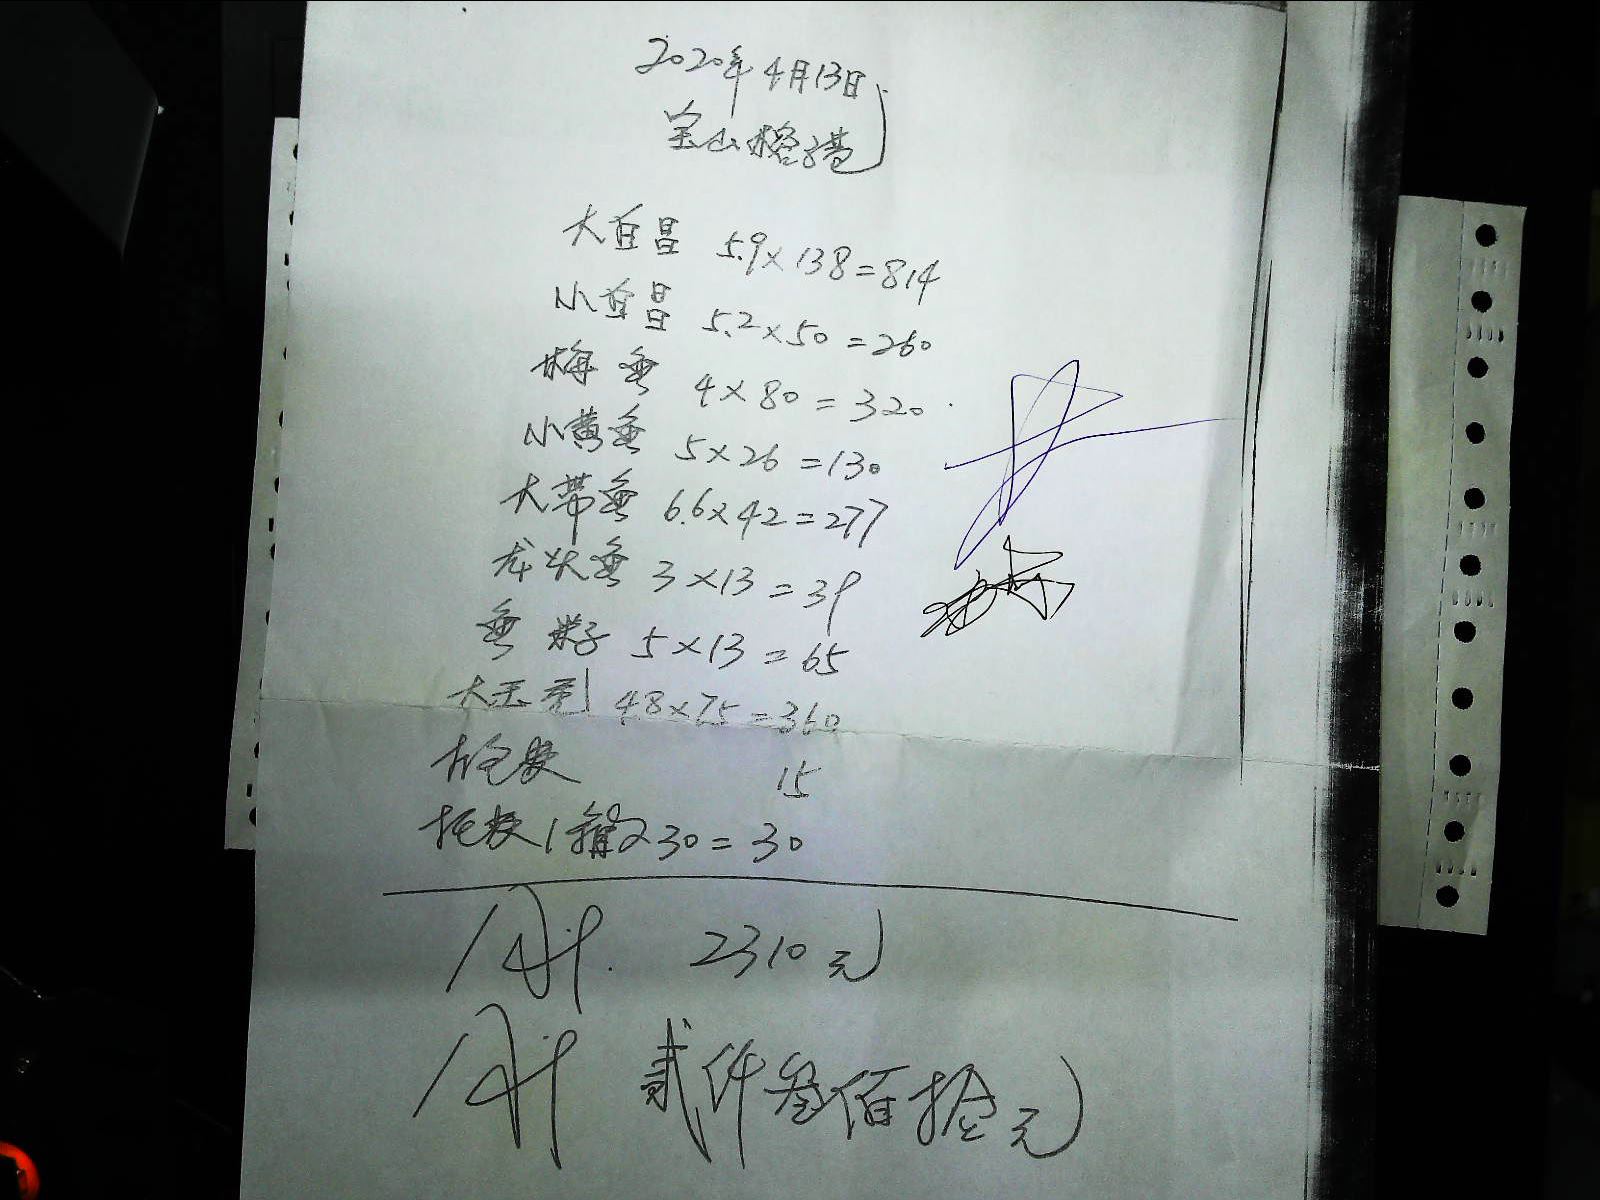 2020年4月13日
宝山
大白昌 5.9×138=814
小白昌 5.2×50=260
梅鱼 4×80=320
小黄鱼 5×26=130
大带鱼 6.6×42=277
龙头鱼 3×13=39
鱼籽 5×13=65
大玉秃 4.8×75=360
15
1箱×30=30
合计 2310元
合计 贰仟叁佰拾元